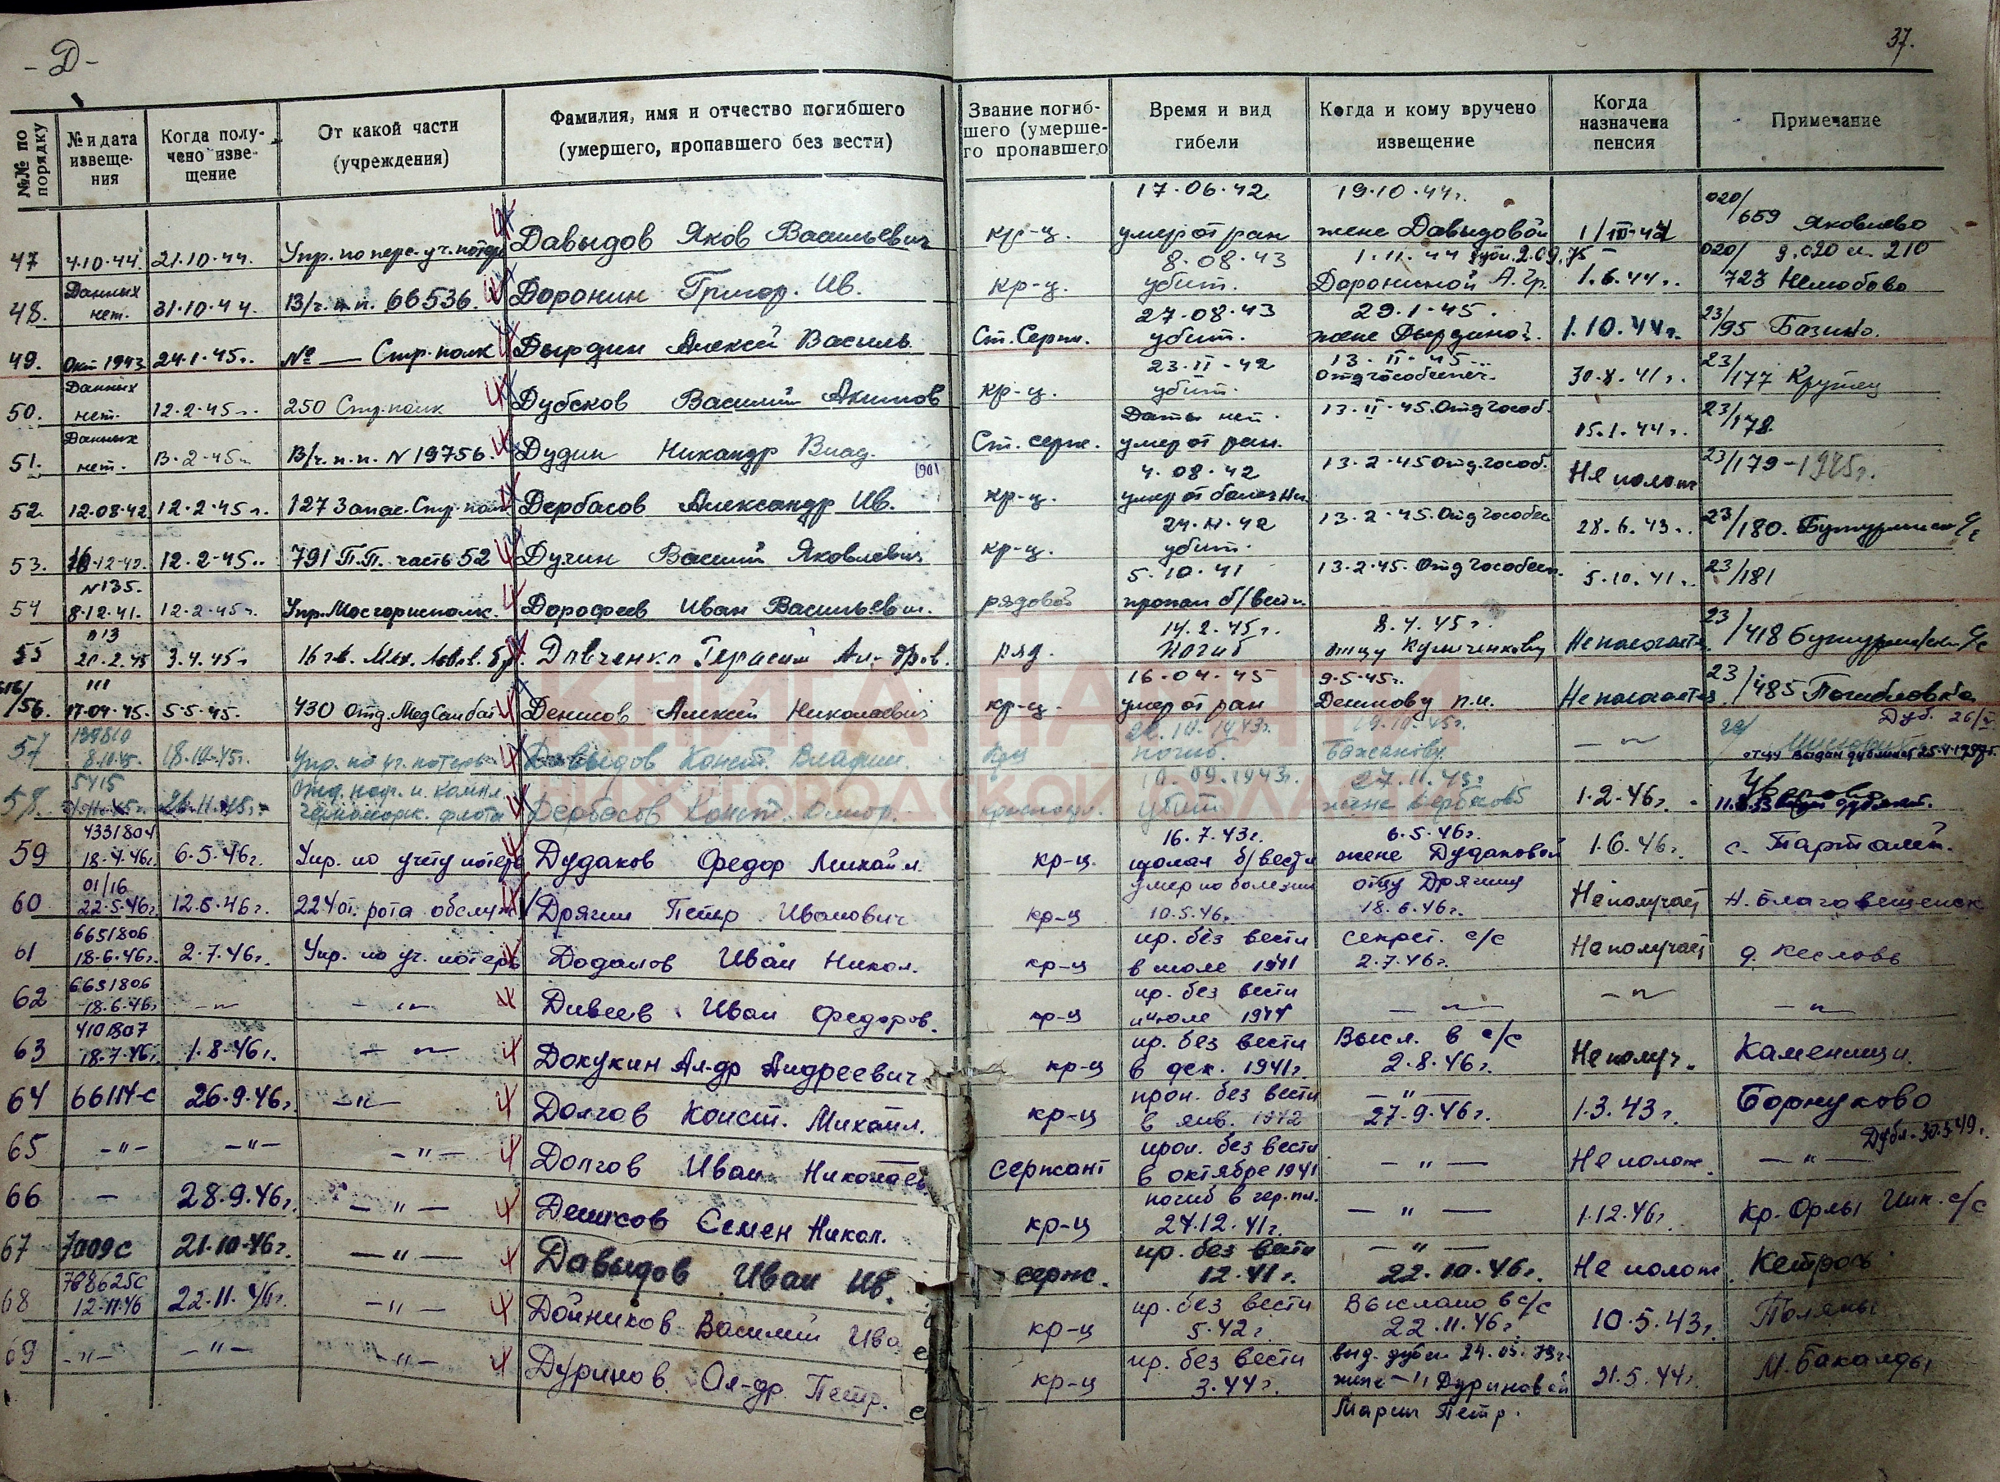 - Д -
37.
№№ по порядку
№ и дата извеще-
ния
Когда полу-
чено изве-
щение
От какой части
(учреждения)
Фамилия, имя и отчество погибшего
(умершего, пропавшего без вести)
Звание погиб-
шего (умерше-
го пропавшего
Время и вид
гибели
Когда и кому вручено
извещение
Когда
назначена
пенсия
Примечание
47 4.10.44. 21.10.44. Упр. по перс. уч. потерь Давыдов Яков Васильевич кр-ц. 17.06.42 умер от ран 19.10.44г. жене Давыдовой 020/659 Яковлево
48. Данных нет. 31.10.44. В/ч. п.п. 66536. Доронин Григор. Ив. кр-ц. 8.08.43 убит. 1.11.44 Дорониной А. Гр. 1.6.44г. 020/723 Нелюбово
49. Окт 1943 24.1.45г. № — Стр. полк Дырдин Алексей Василь Ст. Серж. 27.08.43 убит. 29.1.45. жене Дырдиной. 1.10.44г. 23/95 Базино.
50. Данных нет. 12.2.45г. 250 Стр. полк Дубсков Василий Акимов кр-ц. 23.II-42 убит 13.II-45 30.8.41г. 23/177 Крутец
51. Данных нет. 13.2.45г. В/ч. п.п. N 19756. Дудин Никандр Влад. Ст. серж. Даты нет. умер от ран. 13.II-45. Отд гособ. 15.1.44г. 23/178
52. 12.08.42 12.2.45г. 127 Запас. Стр. пол Дербасов Александр Ив. кр-ц. 4.08.42 умер от 13.2.45 Отд гособ. Не полож 23/179 - 1925г.
53. 12.2.45г. 791 П.П. часть 52 Дучин Василий Яковлевич кр-ц. убит. 13.2.45. Отд гособес 28.6.43г. 23/180.
54 N135. 8.12.41. 12.2.45г. Упр. Мосгорисполк. Дорофеев Иван Васильевич. рядовой 5.10.41 пропал б/вести 13.2.45. Отд гособес. 5.10.41г. 23/181
55 п13 20.2.45 3.4.45г Давченко Герасим Ал-дров. ряд. 14.2.45г. погиб 8.4.45г. отцу Не полагается 23/418
56. 111 17.04.45. 5.5.45. 430 Отд. Мед Сан бат Денисов Алексей Николаевич кр-ц. 16.04.45 умер от ран 9.5.45г. Денисову П.И. Не полагается 23/485
57 139810 8.10.45. 18.10.45г. Упр. по уч. потерь Давыдов Конст. Владим. погиб. Баженову — 〃 —
58. 5415 26.11.45г. Черноморск. флота Дербасов Конст. 10.09.1943г. убит 27.11.45г жене 1.2.46г.
59 4331804 18.4.46г. 6.5.46г. Упр. по учету потерь Дудаков Федор Михайл. кр-ц. 16.7.43г. б/вести 6.5.46г. жене Дудаковой 1.6.46г. с. Тарталей.
60 01/16 22.5.46г. 12.6.46г. 224 от. рота обслуж Дрягин Петр Иванович кр-ц умер по болезни 10.5.46. отцу Дрягину 18.6.46г. Не получает Н. Благовещенск
61 6651806 18.6.46г. 2.7.46г. Упр. по уч. потерь Додонов Иван Никол. кр-ц пр. без вести в июле 1941 Секрет. с/с 2.7.46г. Не получает д. Кеслово
62 6651806 18.6.46г — 〃 — — 〃 — Дивеев Иван Федоров. кр-ц пр. без вести — 〃 — — 〃 — — 〃 —
63 4101807 18.7.46г. 1.8.46г. — 〃 — Докукин Ал-др Андреевич кр-ц пр. без вести в дек. 1941г. Высл. в с/с 2.8.46г. Не получ. Каменищи.
64 66114-с 26.9.46г. — 〃 — Долгов Конст. Михайл. кр-ц проп. без вести в янв. 1942 — 〃 — 27.9.46г. 1.3.43г. Борнуково
65 — 〃 — — 〃 — — 〃 — Долгов Иван Николаев сержант проп. без вести в октябре 1941 — 〃 — Не полож. — 〃 — Дубл. 30.5.49г.
66 — 28.9.46г. — 〃 — Денисов Семен Никол. кр-ц погиб в гер. пл. 24.12.41г. — 〃 — 1.12.46г. Кр. Орлы с/с
67 7009с 21.10.46г. — 〃 — Давыдов Иван Ив. серж. пр. без вести 12.41г. — 〃 — 22.10.46г. Не полож. Кетрось
68 788625с 12.11.46 22.11.46г. — 〃 — Дойников Василий Ива кр-ц пр. без вести 5.42г. Выслано в с/с 22.11.46г. 10.5.43г. Поляны
69 — 〃 — — 〃 — — 〃 — Дуринов Ал-др Петр. кр-ц пр. без вести 3.44г. выд. дубл 24.05. жене — 〃 Дуриновой Марии Петр. 21.5.44г. М. Бакалды
КНИГА ПАМЯТИ
НИЖЕГОРОДСКОЙ ОБЛАСТИ